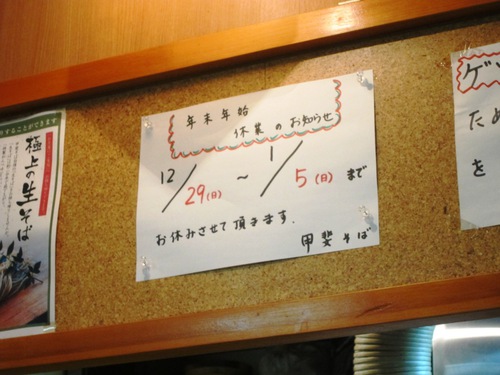 年末年始
休業のお知らせ
12/29(日)～1/5(日)まで
お休みさせて頂きます.
甲斐そば
極上の生そば
することができます
ゲッ
ため
を